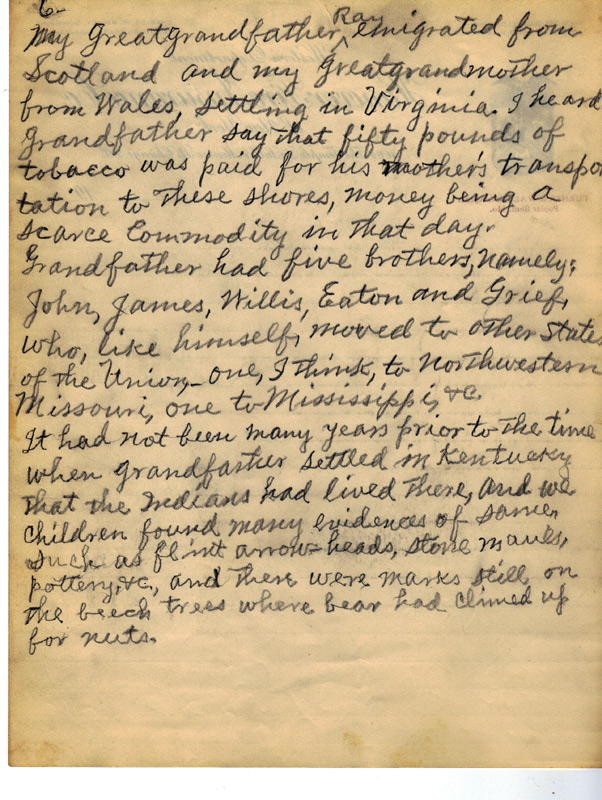 6-
My Greatgrandfather, Ray emigrated from
Scotland and my Greatgrandmother
from Wales, settling in Virginia. I heard
Grandfather say that fifty pounds of
tobacco was paid for his mother's transpor
tation to these shores, money being a
scarce Commodity in that day.
Grandfather had five brothers, namely:
John, James, Willis, Eaton and Grief,
who, like himself, moved to other States
of the Union,- one, I think, to Northwestern
Missouri, one to Mississippi, &c.
It had not been many years prior to the time
when grandfather settled in Kentucky
that the Indians had lived there, and we
children found many evidences of same,
such as flint arrow-heads, stone mauls,
pottery, &c., and there were marks still on
the beech trees where bear had climed up
for nuts.